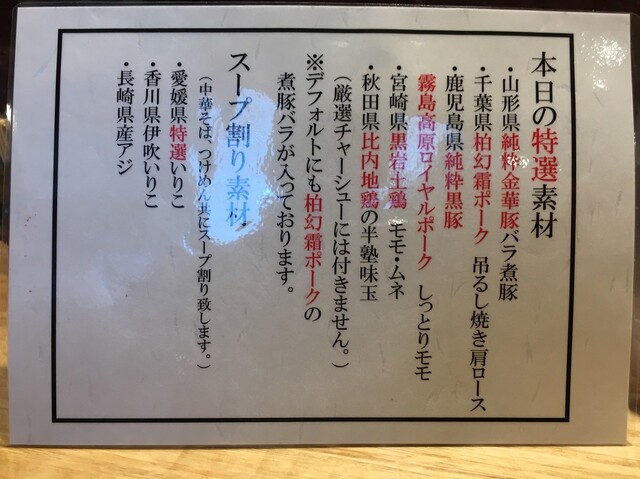 本日の特選素材
・山形県純粋金華豚バラ煮豚
・千葉県柏幻霜ポーク 吊るし焼き肩ロース
・鹿児島県純粋黒豚
霧島高原ロイヤルポーク しっとりモモ
・宮崎県黒岩土鶏 モモ・ムネ
・秋田県比内地鶏の半塾味玉
(厳選チャーシューには付きません。)
※デフォルトにも柏幻霜ポークの
煮豚バラが入っております。
スープ割り素材
(中華そば、つけめん共にスープ割り致します。)
・愛媛県特選いりこ
・香川県伊吹いりこ
・長崎県産アジ